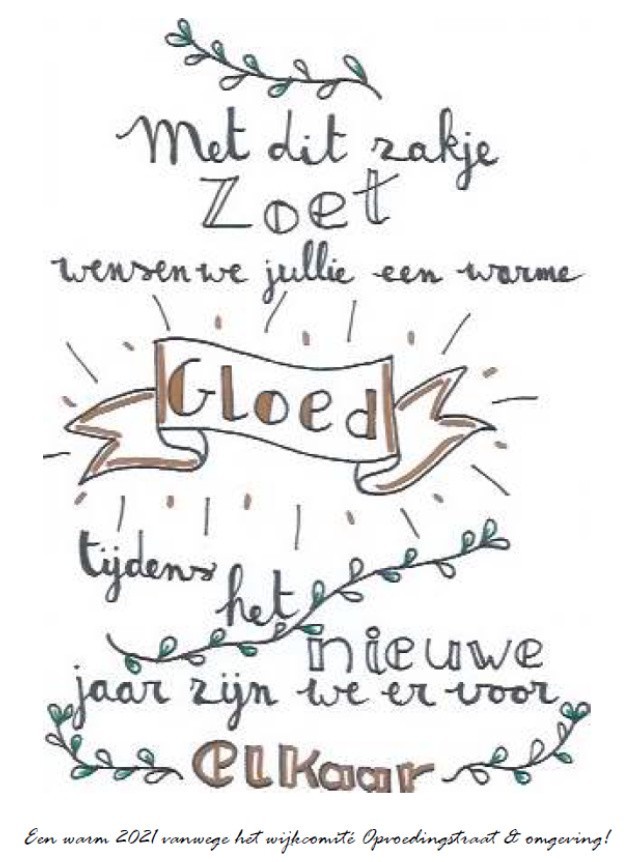 Met dit zakje
Zoet
wensen we jullie een warme
Gloed
tijdens
het
nieuwe
jaar zijn we er voor
elkaar
Een warm 2021 vanwege het wijkcomité Opvoedingstraat & omgeving!